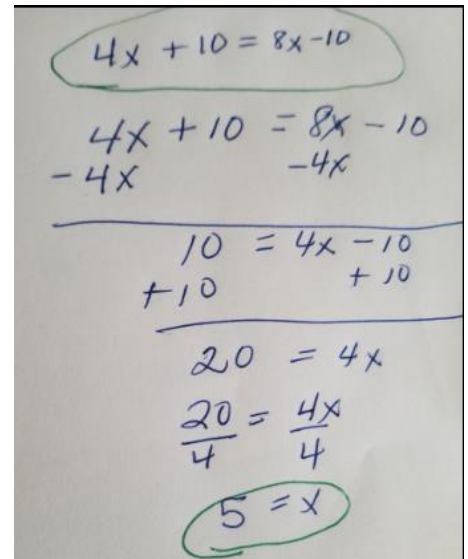 4x + 10 = 8x - 10
4x + 10 = 8x - 10
- 4x -4x
10 = 4x - 10
+10 + 10
20 = 4x
20/4 = 4x/4
5 = x